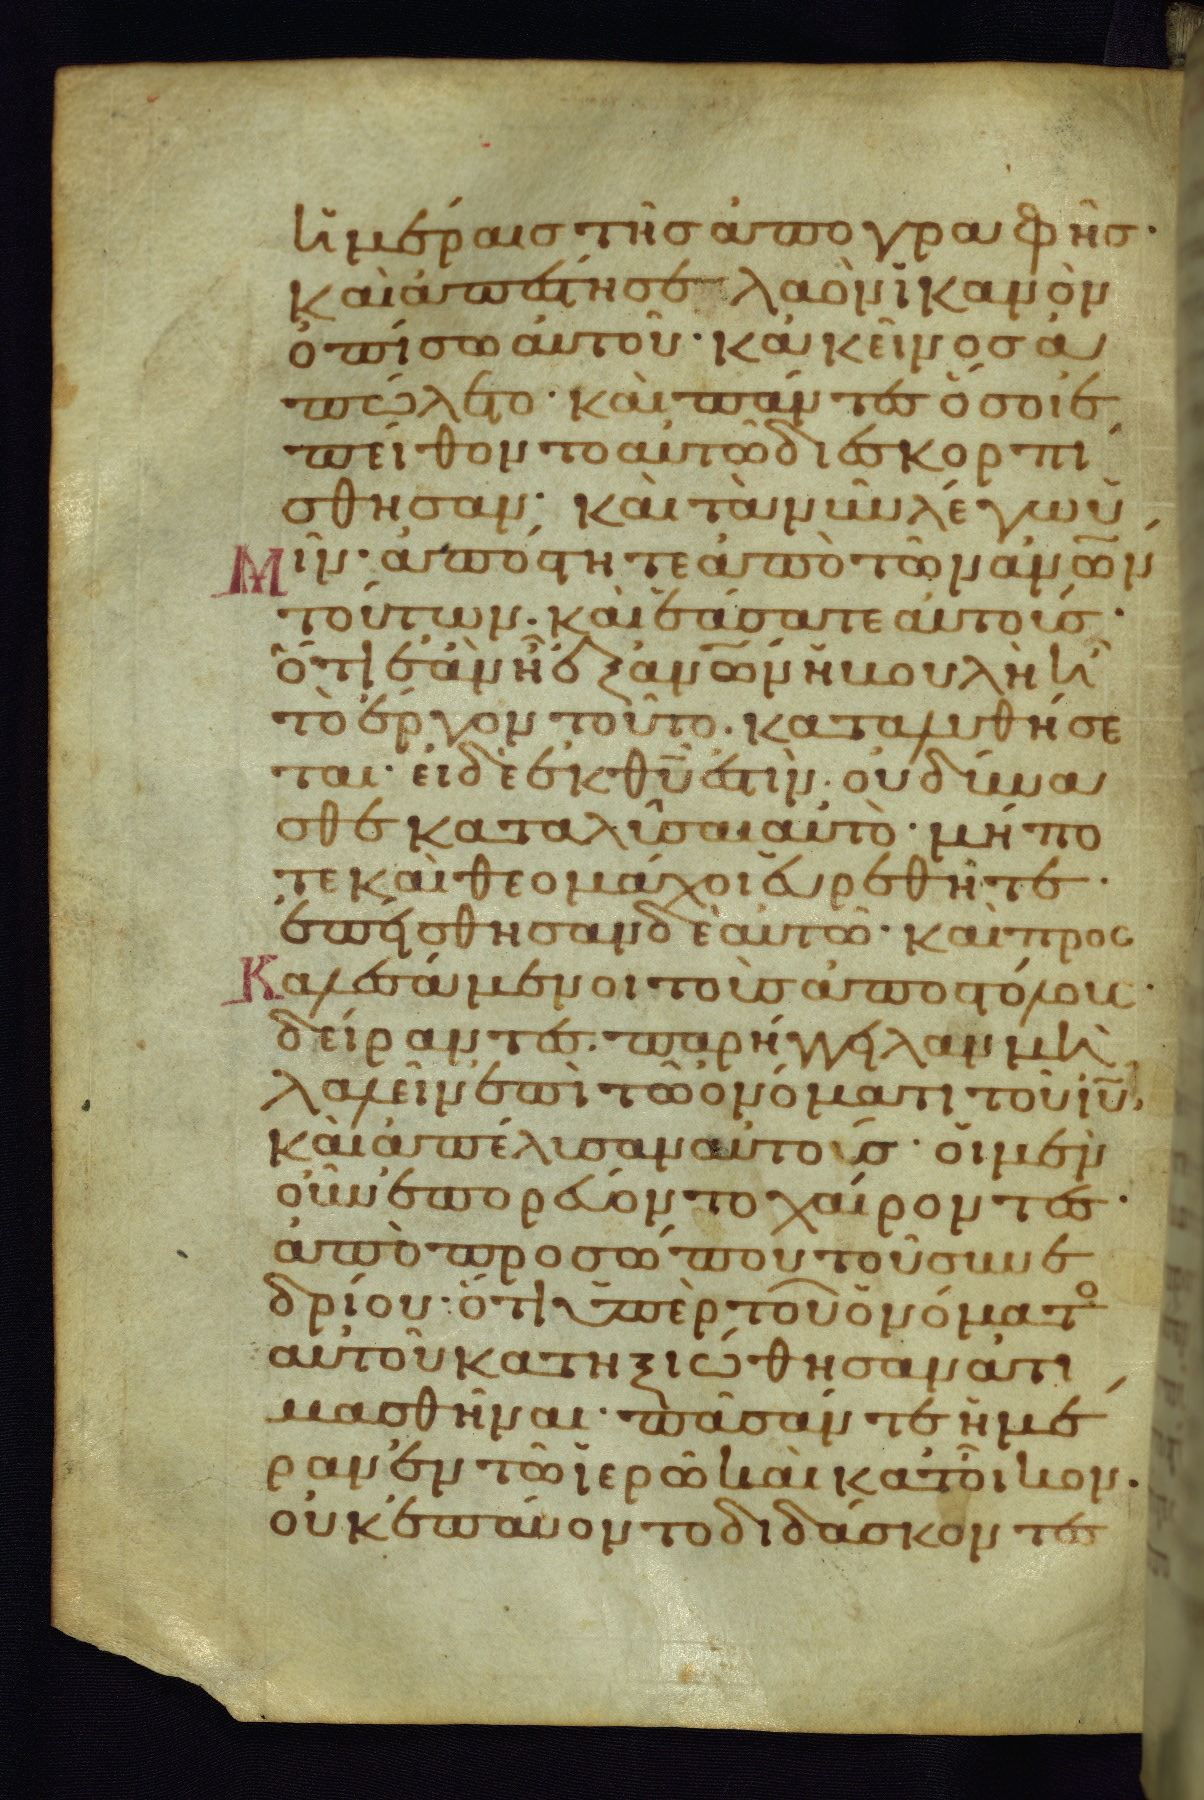 ἡμέραις τῆς ἀπογραφῆς·
καὶ ἀπέστησε λαὸν ἱκανὸν
ὀπίσω αὐτοῦ· κἀκεῖνος ἀ
πώλετο· καὶ πάντες ὅσοι ἐ
πείθοντο αὐτῶ διεσκορπί
σθησαν· καὶ τὰ νῦν λέγω ὑ
Μῖν· ἀπόστητε ἀπὸ τῶν ἀνων
τούτων· καὶ ἐάσατε αὐτούς·
ὅτι ἐὰν ἦ ἐξ ανων ἡ βουλὴ ἢ
τὸ ἔργον τοῦτο· καταλυθήσε
ται· εἰ δὲ ἐκ θυ ἐστὶν· οὐ δύνα
σθε καταλῦσαι αὐτὸ· μήπο
τε καὶ θεομάχοι εὑρεθῆτε·
ἐπείσθησαν δὲ αὐτῶ· καὶ προς
Καλεσάμενοι τοὺς ἀποστόλους·
δείραντες· παρήγγειλαν μὴ
λαλεῖν ἐπὶ τῶ ὀνόματι τοῦ ιυ,
καὶ ἀπέλυσαν αὐτούς· οἱ μὲν
οὖν ἐπορεύοντο χαίροντες·
ἀπὸ προσώπου τοῦ συνε
δρίου· ὅτι ὑπὲρ τοῦ ὀνόματο
αὐτοῦ κατηξιώθησαν ἀτι
μασθῆναι· πᾶσάν τε ἡμέ
ραν ἐν τῶ ἱερῶ καὶ κατ' οἶκον·
οὐκ ἐπαύοντο διδάσκοντες